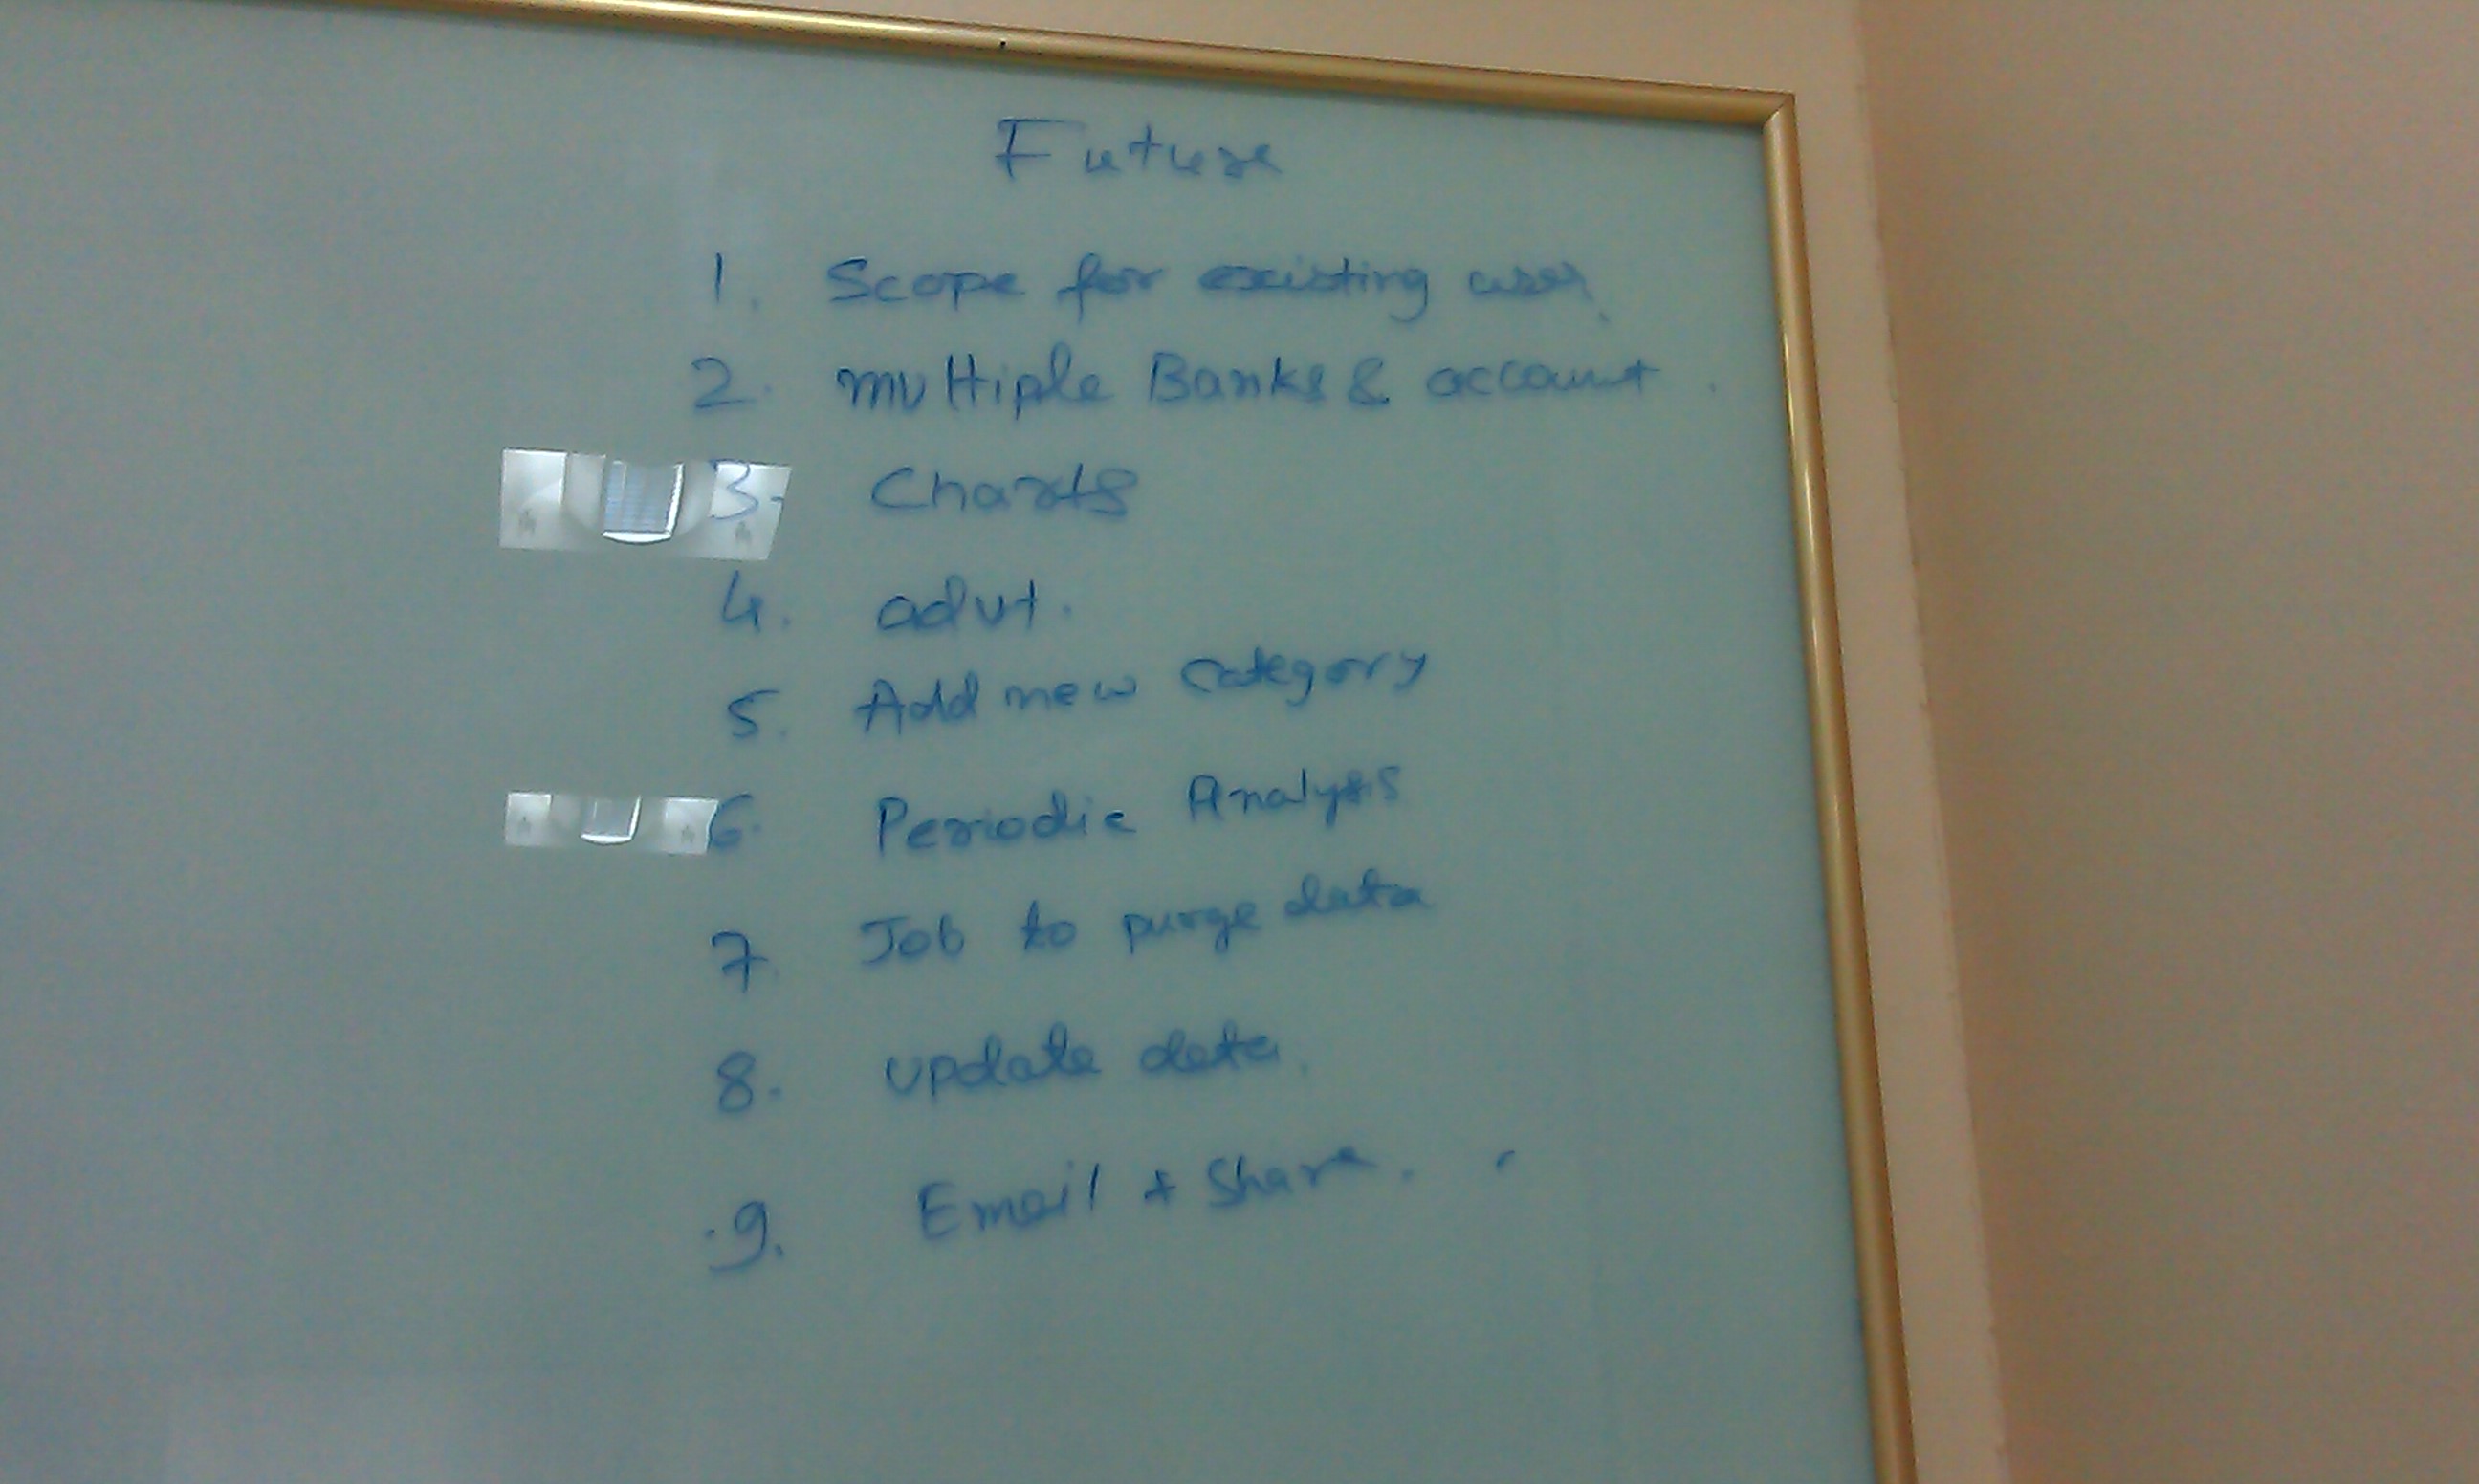 Future
1. Scope for existing user.
2. multiple Banks & account.
3. Charts
4. advt.
5. Add new category
6. Periodic Analysis
7. Job to purge data
8. update data.
9. Email + Share.